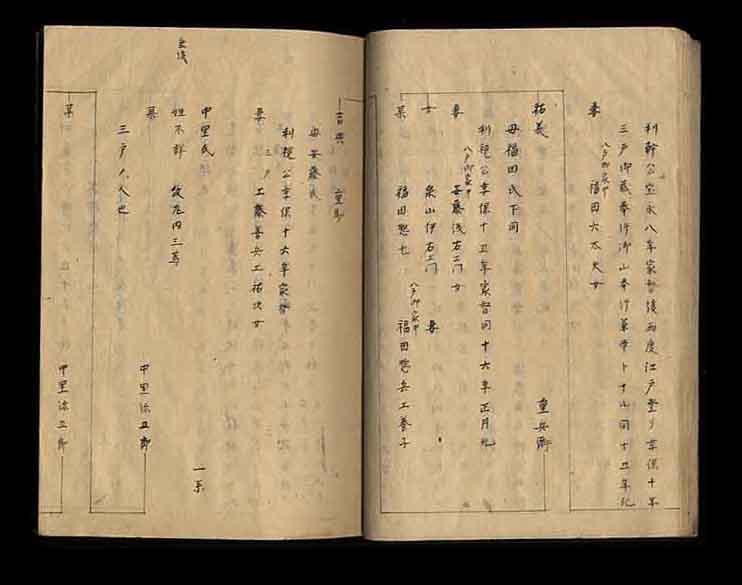 利幹公宝永八年家督後両度江戸登リ享保十年
三戸御蔵奉行御山奉行兼帯卜十山同十五年死
妻 八戸御家中 福田六太夫女
祐義 重兵衛
母福田氏下同
利視公享保十五年家督同十六年正月死
妻 八戸御家中 安藤浅右エ門女
女 泉山伊右エ門 妻
某 福田惣七 八戸御家中 福田惣兵エ養子
吉典 重助
母安藤氏
利視公享保十六年家督
妻 三戸 工藤喜兵エ祐次女
一系
中里氏
姓不詳 紋丸内三
某 中里弥五郎
三戸ノ人也
某 中里弥五郎